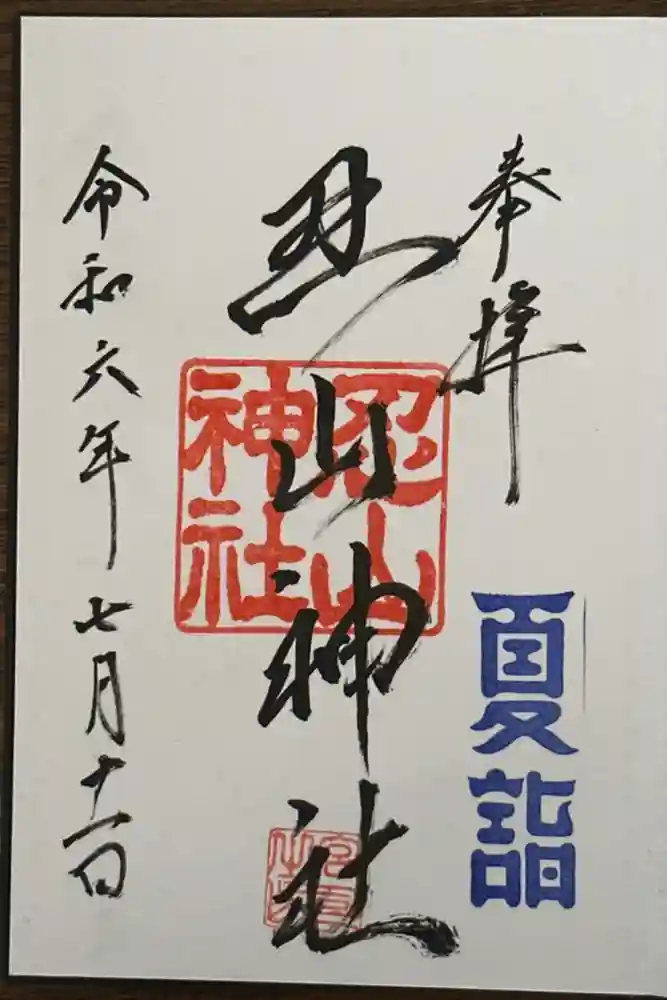 奉拝
夏詣
忍山神社
忍山神社
令和六年七月十一日